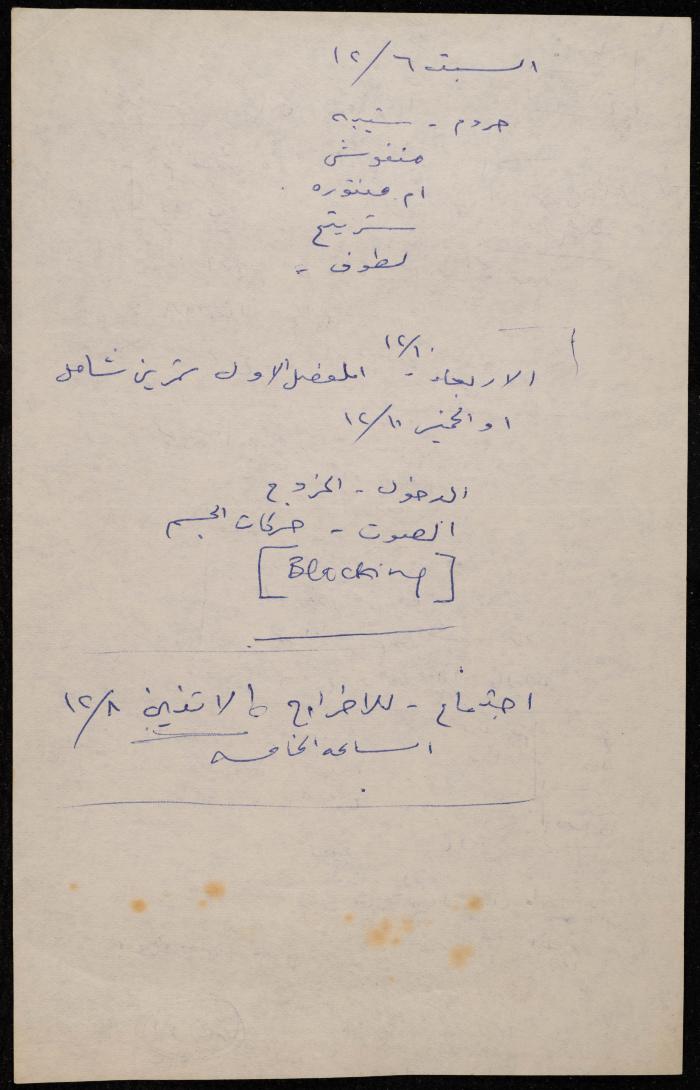 السبت ١٢/٦
حردم - شيبه
منفوش
ام منتوره
ستريتح
لطوف -
الاربعاء ١٢/١٠ الفصل الاول تمرين شامل
او الخميس ١٢/١١
الدخول - الخروج
الصوت - حركات الجسم
[Blocking]
اجتماع - للاخراج الاثنين ١٢/٨
الساعه الخامسه